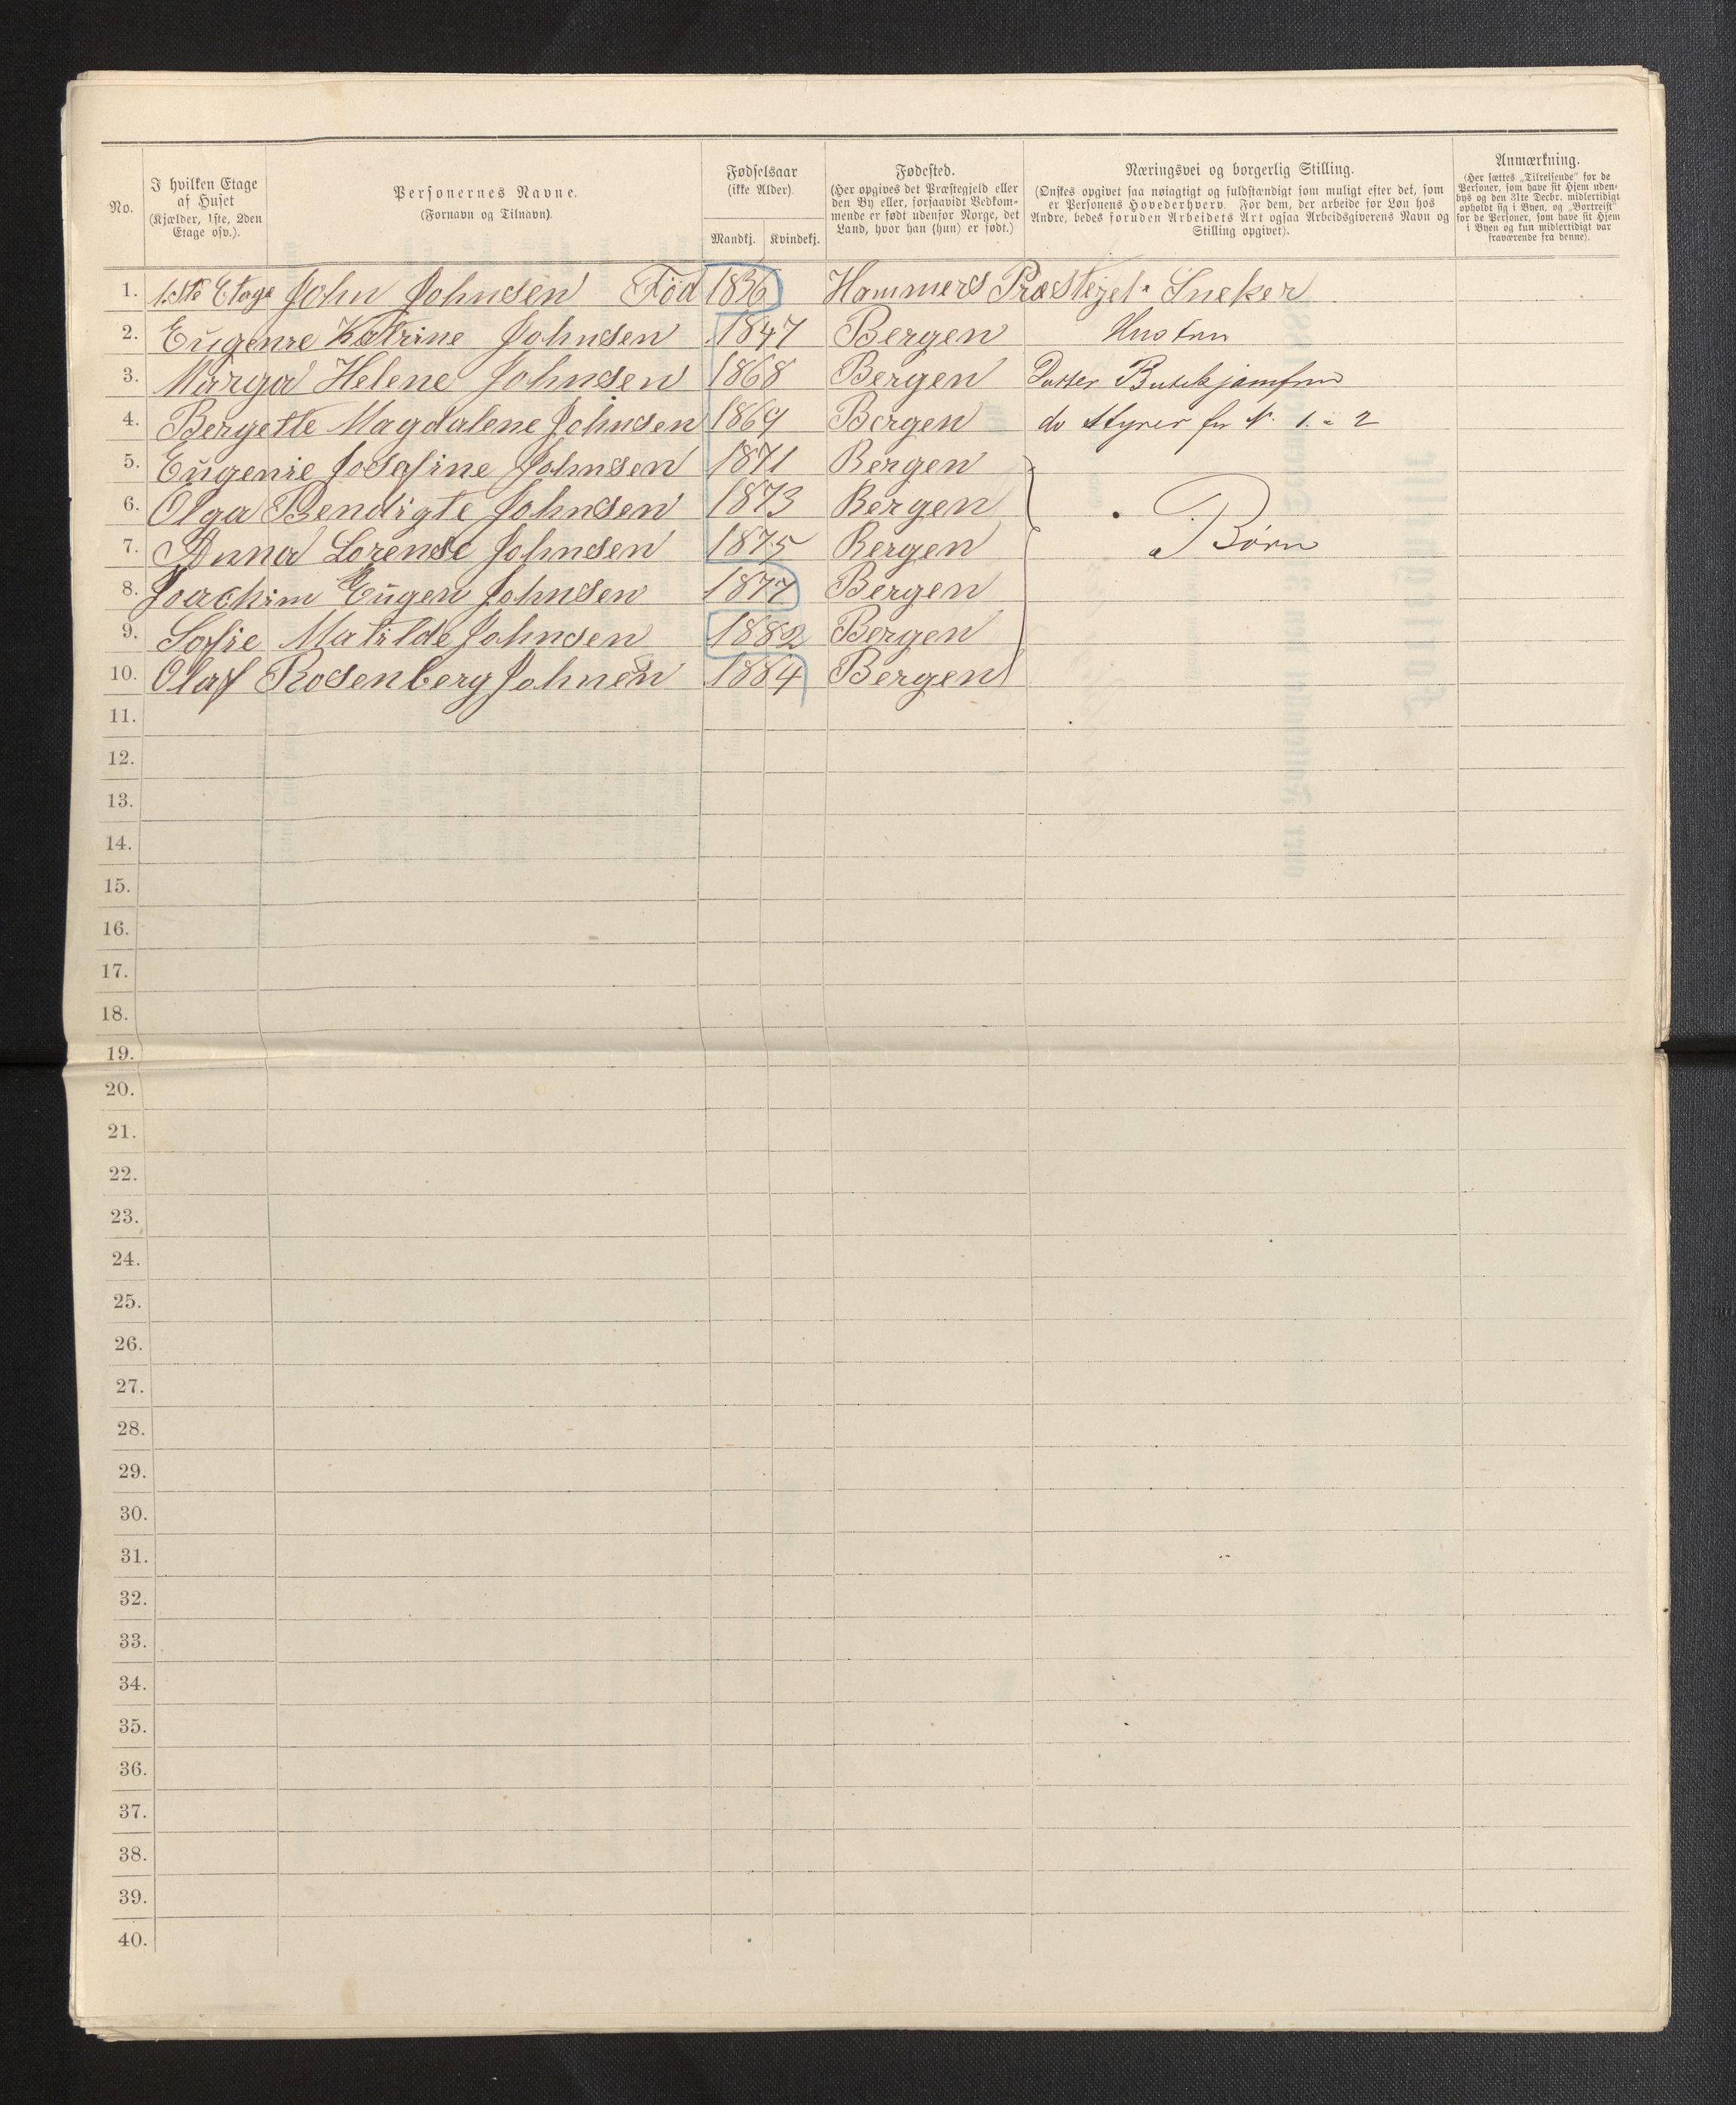 No.
I hvilken Etage
af Huset
(Kjælder, 1ste, 2den
Etage osv.).
Personernes Navne.
(Fornavn og Tilnavn).
Fødselsaar
(ikke Alder)
Mandkj. Kvindekj.
Fødested.
(Her opgives det Præstegjeld eller
den By eller, forsaavidt Vedkom-
mende er født udenfor Norge, det
Land, hvor han (hun) er født.)
Næringsvei og borgerlig Stilling.
(Ønskes opgivet saa nøiagtigt og fuldstændigt som muligt efter det, som
er Personens Hovederhverv. For dem, der arbeide for Løn hos
Andre, bedes foruden Arbeidets Art ogsaa Arbeidsgiverens Navn og
Stilling opgivet).
Anmærkning.
(Her sættes „Tilreisende" for de
Personer, som have sit Hjem uden-
bys og den 31te Decbr. midlertidigt
opholdt sig i Byen, og „Bortreist"
for de Personer, som have sit Hjem
i Byen og kun midlertidigt var
fraværende fra denne).
1. 1ste Etage John Johnsen Föd 1836 Hammers Præstegel. Sneker
2. Eugenie Katrine Johnsen 1847 Bergen Hustru
3. Marga Helene Johnsen 1868 Bergen Datter Butikjomfru
4. Bergette Magdalene Johnsen 1869 Bergen do Styrer for N. 1. 2
5. Eugenie Josefine Johnsen 1871 Bergen
6. Olga Bendigte Johnsen 1873 Bergen
7. Anna Lorense Johnsen 1875 Bergen Børn
8. Joachim Eugen Johnsen 1877 Bergen
9. Sofie Matilde Johnsen 1882 Bergen
10. Olaf Rosenberg Johnsen 1884 Bergen
11.
12.
13.
14.
15.
16.
17.
18.
19.
20.
21.
22.
23.
24.
25.
26.
27.
28.
29.
30.
31.
32.
33.
34.
35.
36.
37.
38.
39.
40.